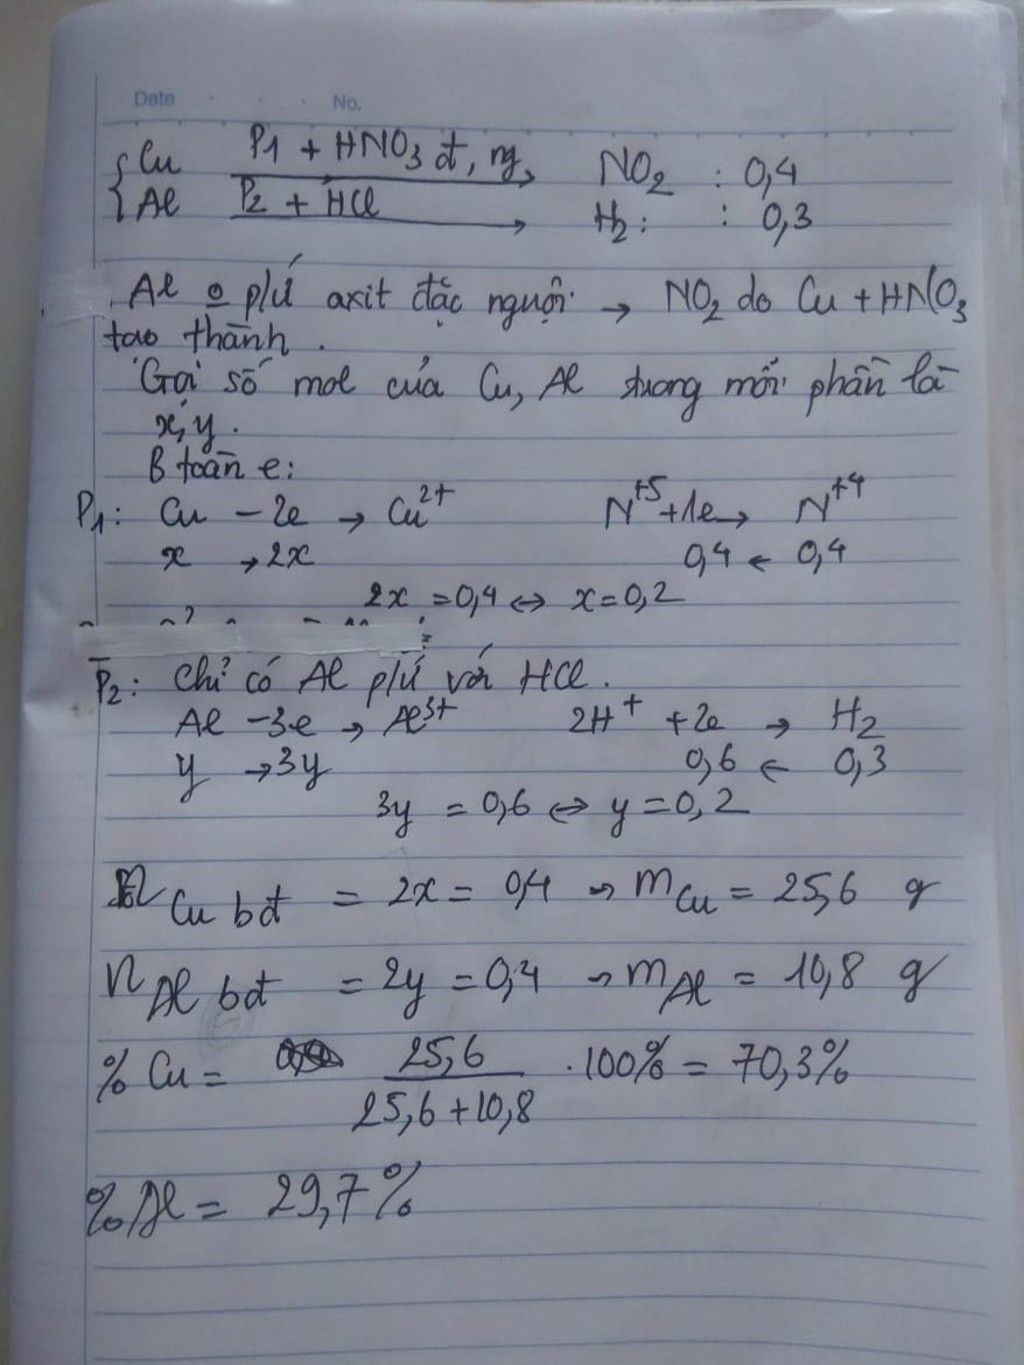 Date No.
Cu P1 + HNO3 đ, ng, NO2 : 0,4
Al P2 + HCl H2: : 0,3
Al o p/ứ axit đặc nguội → NO2 do Cu + HNO3
tạo thành.
Gọi số mol của Cu, Al trong mỗi phần là
x, y.
B toàn e:
P1: Cu - 2e → Cu2+ N+5 + 1e → N+4
x → 2x 0,4 ← 0,4
2x = 0,4 ⇔ x = 0,2
P2: Chỉ có Al p/ứ với HCl.
Al - 3e → Al3+ 2H+ + 2e → H2
y → 3y 0,6 ← 0,3
3y = 0,6 ⇔ y = 0,2
n Cu bđ = 2x = 0,4 → mCu = 25,6 g
n Al bđ = 2y = 0,4 → mAl = 10,8 g
% Cu = 25,6 / 25,6 + 10,8 . 100% = 70,3%
% Al = 29,7%